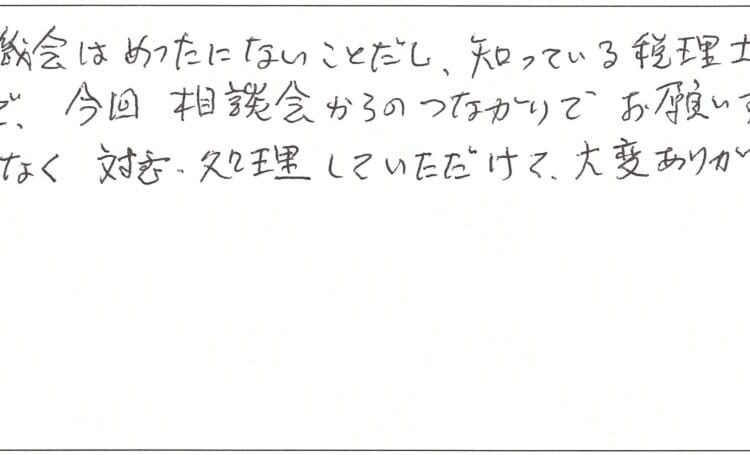 機会はめったにないことだし、知っている税理士
で、今回相談会からのつながりでお願いす
なく対応・処理していただけて、大変ありが